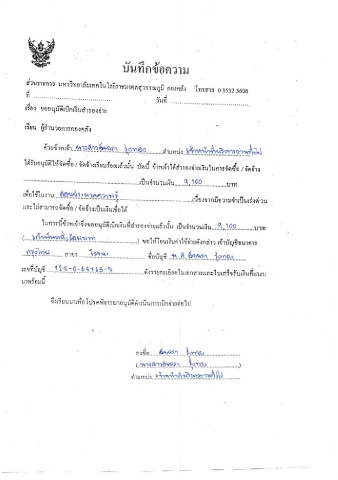 บันทึกข้อความ
ส่วนราชการ มหาวิทยาลัยเทคโนโลยีราชมงคลสุวรรณภูมิ กองคลัง โทรสาร 0 3532 3608
ที่ วันที่
เรื่อง ขออนุมัติเบิกเงินสำรองจ่าย
เรียน ผู้อำนวยการกองคลัง
ด้วยข้าพเจ้า นางสาว ตำแหน่ง เจ้าหน้าที่บริหารงานทั่วไป
ได้รับอนุมัติให้จัดซื้อ / จัดจ้างเรียบร้อยแล้วนั้น บัดนี้ ข้าพเจ้าได้สำรองจ่ายเงินในการจัดซื้อ / จัดจ้าง
เป็นจำนวนเงิน 9,100 บาท
เพื่อใช้ในงาน เนื่องจากมีความจำเป็นเร่งด่วน
และไม่สามารถจัดซื้อ / จัดจ้างเป็นเงินเชื่อได้
ในการนี้ข้าพเจ้าจึงขออนุมัติเบิกเงินที่สำรองจ่ายแล้วนั้น เป็นจำนวนเงิน 9,100 บาท
( เก้าพันหนึ่งร้อยบาท ) ขอให้โอนเงินค่าใช้จ่ายดังกล่าว เข้าบัญชีธนาคาร
กรุงไทย สาขา โรจนะ ชื่อบัญชี น.ส.
เลขที่บัญชี ดังรายละเอียดในเอกสารและใบเสร็จรับเงินที่แนบ
มาพร้อมนี้
จึงเรียนมาเพื่อโปรดพิจารณาอนุมัติดำเนินการเบิกจ่ายต่อไป
ลงชื่อ
( นางสาว )
ตำแหน่ง เจ้าหน้าที่บริหารงานทั่วไป